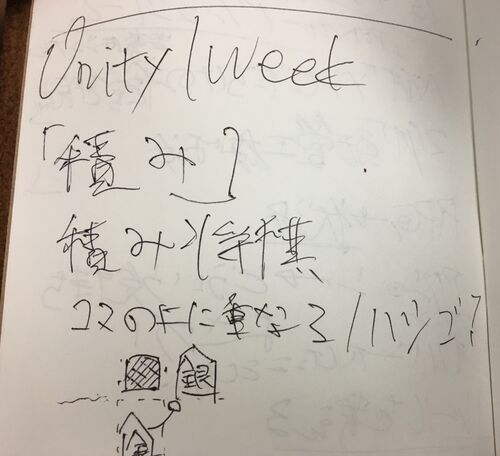 Unity 1 Week
「積み」
積み×将棋
コマの上に重なる/ハシゴ?
銀